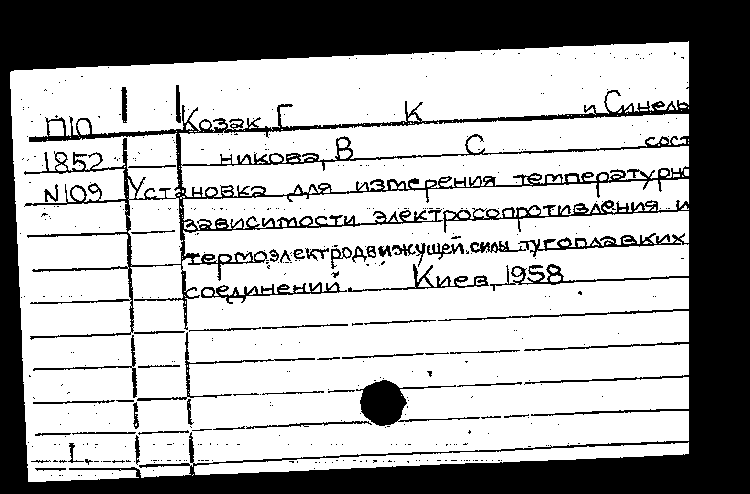 П10 Козак, Г К и Синель
1852 никова, В С сост
N109 Установка для измерения температурно
зависимости электросопротивления и
термоэлектродвижущей силы тугоплавких
соединений. Киев, 1958
1.